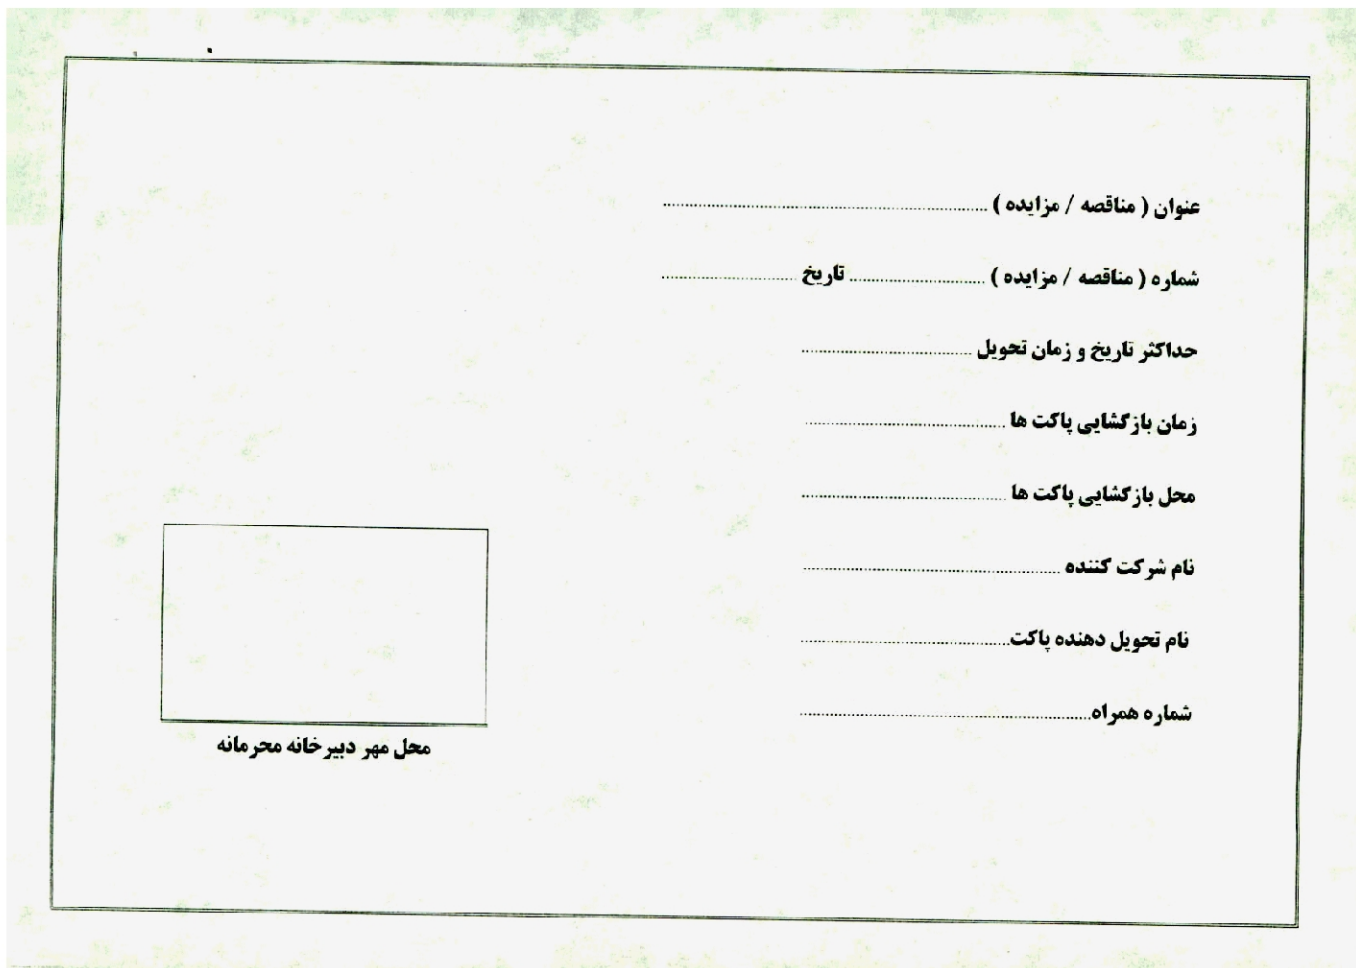 عنوان ( مناقصه / مزایده ) ........................................................
شماره ( مناقصه / مزایده ) ........................ تاریخ ........................
حداکثر تاریخ و زمان تحویل ..............................
زمان بازگشایی پاکت ها ...................................
محل بازگشایی پاکت ها ....................................
نام شرکت کننده .............................................
نام تحویل دهنده پاکت.....................................
شماره همراه....................................................
محل مهر دبیرخانه محرمانه